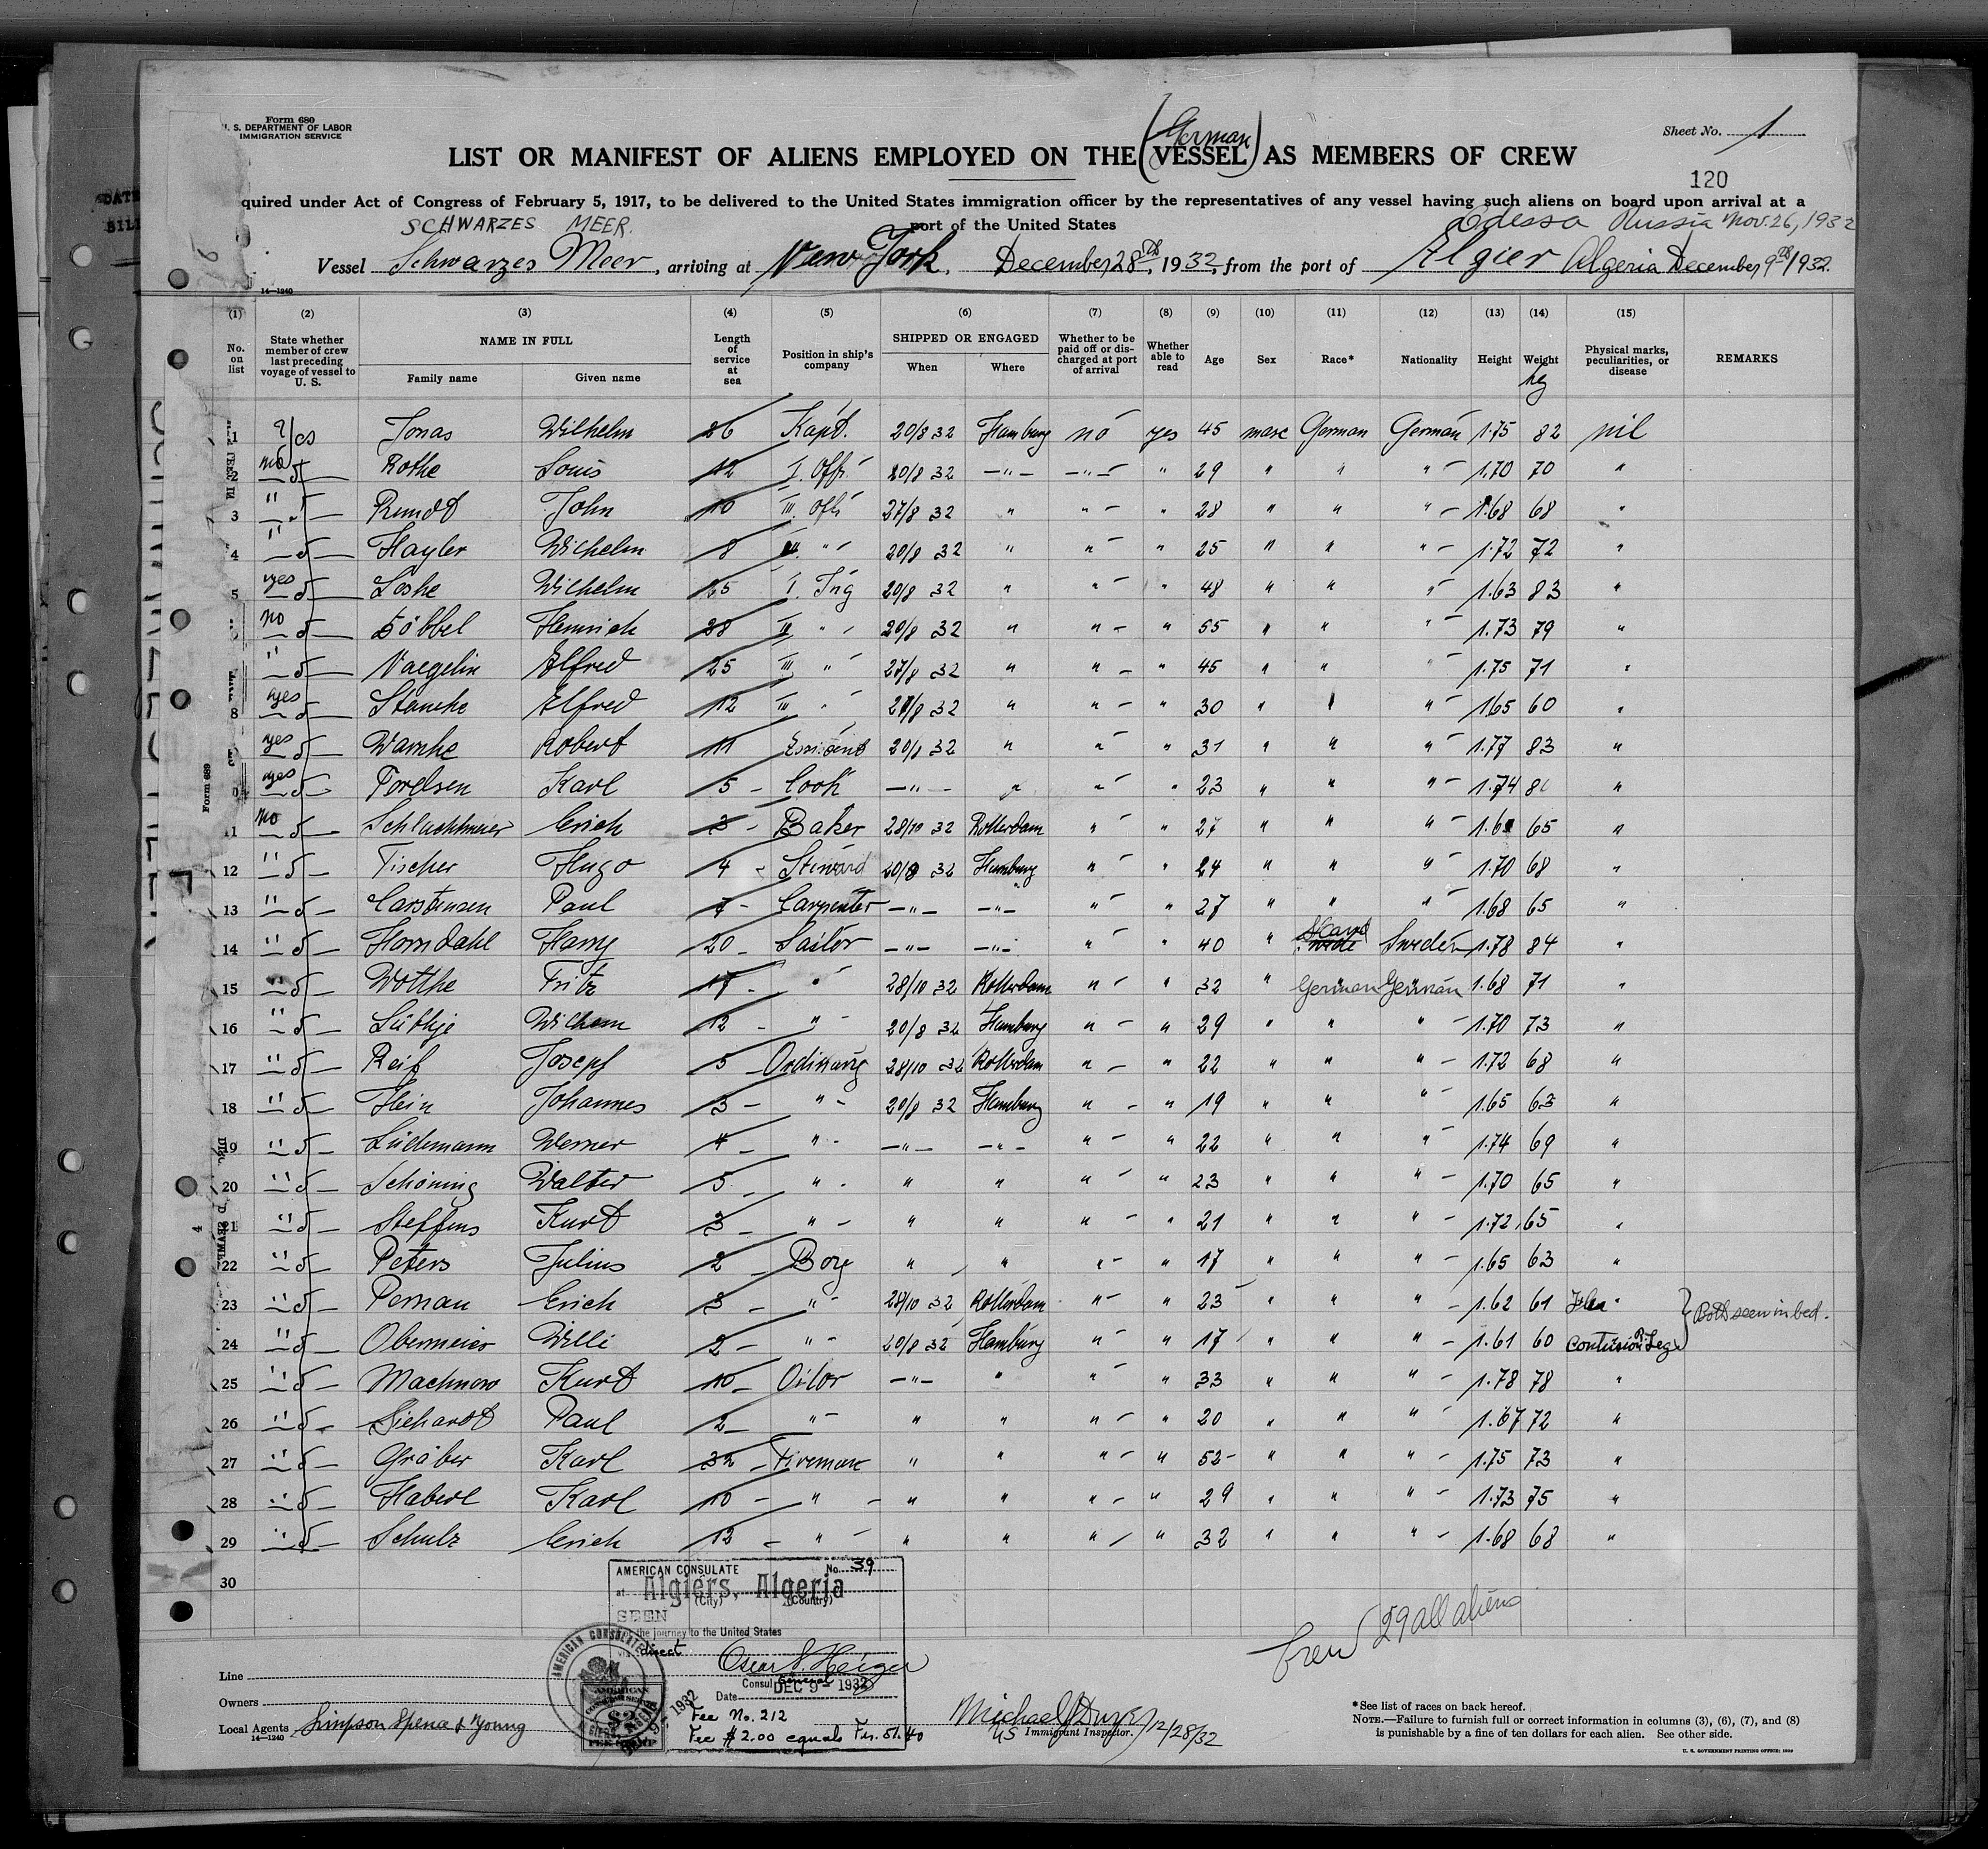 Form 680
U. S. DEPARTMENT OF LABOR
IMMIGRATION SERVICE
Sheet No. 1
German
LIST OR MANIFEST OF ALIENS EMPLOYED ON THE (VESSEL) AS MEMBERS OF CREW
120
quired under Act of Congress of February 5, 1917, to be delivered to the United States immigration officer by the representatives of any vessel having such aliens on board upon arrival at a
port of the United States
SCHWARZES MEER.
Odessa Russia Nov. 26, 1932
Vessel Schwarzes Meer, arriving at New York, December 28th, 1932, from the port of Algier Algeria December 9th 1932.
14—1240
(1) (2) (3) (4) (5) (6) (7) (8) (9) (10) (11) (12) (13) (14) (15)
No. on list State whether member of crew last preceding voyage of vessel to U. S. NAME IN FULL Family name Given name Length of service at sea Position in ship's company SHIPPED OR ENGAGED When Where Whether to be paid off or discharged at port of arrival Whether able to read Age Sex Race* Nationality Height Weight kg Physical marks, peculiarities, or disease REMARKS
1 yes Jonas Wilhelm 26 Kapt. 20/8 32 Hamburg no yes 45 masc German German 1.75 82 nil
2 no Rothe Louis 12 I. Offi. 20/8 32 —"— —"— " 29 " " " 1.70 70 "
3 " Rundt John 10 III. Offi 27/8 32 " " " 28 " " " 1.68 68 "
4 " Hayler Wilhelm 8 " 20/8 32 " " " 25 " " " 1.72 72 "
5 yes Loske Wilhelm 25 I. Ing 20/8 32 " " " 48 " " " 1.63 83 "
no Döbbel Heinrich 28 II " 20/8 32 " " " 55 " " " 1.73 79 "
" Naegelin Alfred 25 III " 27/8 32 " " " 45 " " " 1.75 71 "
8 yes Stancke Alfred 12 III " 27/8 32 " " " 30 " " " 1.65 60 "
yes Warnke Robert 11 20/8 32 " " " 31 " " " 1.77 83 "
yes Torelsen Karl 5 Cook —"— " " " 23 " " " 1.74 "
11 no Schlachtmeier Erich 3 Baker 28/10 32 Rotterdam " " 27 " " " 65 "
12 " Fischer Hugo 4 Steward 20/8 32 Hamburg " " 24 " " " 1.70 68 "
13 " Carstensen Paul 7 Carpenter —"— —"— " " 27 " " " 1.68 65 "
14 " Horndahl Harry 20 Sailor —"— —"— " " 40 " Scand Sweden 1.78 84 "
15 " Wotthe Fritz 17 " 28/10 32 Rotterdam " " 32 " German German 1.68 71 "
16 " Lüthje Wilhem 12 " 20/8 32 Hamburg " " 29 " " " 1.70 73 "
17 " Reif Josepf 5 Ordinary 28/10 32 Rotterdam " " 22 " " " 1.72 68 "
18 " Hein Johannes 3 " 20/8 32 Hamburg " " 19 " " " 1.65 63 "
19 " Lüdemann Werner 4 " —"— —"— " " 22 " " " 1.74 69 "
20 " Schöning Walter 5 " " " " " 23 " " " 1.70 65 "
21 " Steffens Kurt 3 " " " " " 21 " " " 1.72 65 "
22 " Peters Julius 2 Boy " " " " 17 " " " 1.65 63 "
23 " Pernau Erich 3 " 28/10 32 Rotterdam " " 23 " " " 1.62 61 Both seen in bed.
24 " Obermeier Willi 2 " 20/8 32 Hamburg " " 17 " " " 1.61 60 Contusion R. Leg
25 " Machnow Kurt 10 Oiler —"— " " " 33 " " " 1.78 78 "
26 " Siehardt Paul 2 " " " " " 20 " " " 1.67 72 "
27 " Gräber Karl 32 Fireman " " " " 52 " " " 1.75 73 "
28 " Haberl Karl 10 " " " " " 29 " " " 1.73 75 "
29 " Schulz Erich 12 " " " " " 32 " " " 1.68 68 "
30
Form 689
AMERICAN CONSULATE No. 39
at Algiers, Algeria
(City) (Country)
SEEN
the journey to the United States
direct
Consul General
Date DEC 9 - 1932
Fee No. 212
Fee $2.00 equals Frs. 51.40
Crew 29 all aliens
Line
Owners
Local Agents Simpson Spence & Young
14—1240
12/28/32
US Immigrant Inspector.
*See list of races on back hereof.
NOTE.—Failure to furnish full or correct information in columns (3), (6), (7), and (8)
is punishable by a fine of ten dollars for each alien. See other side.
U. S. GOVERNMENT PRINTING OFFICE: 1932